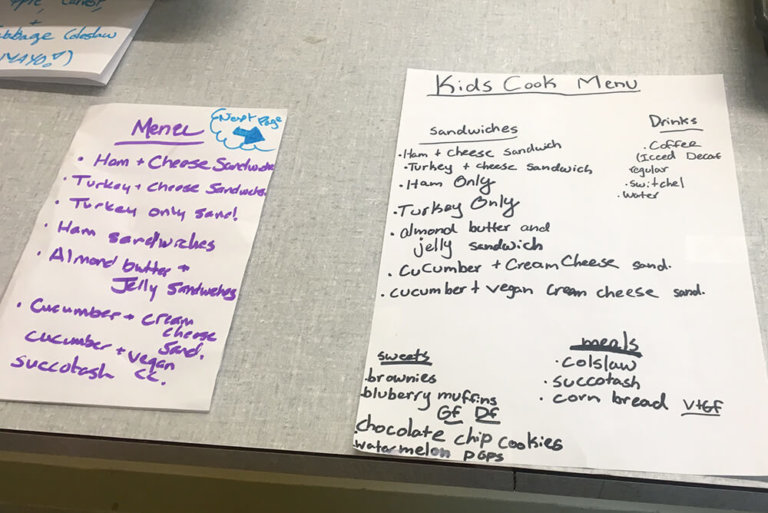 +
Cabbage Coleslaw
(MAYO!)
Menu
Next Page
• Ham + Cheese Sandwiche
• Turkey + Cheese Sandwiches
• Turkey only Sand.
• Ham sandwiches
• Almond butter +
Jelly Sandwiches
• Cucumber + Cream
cheese
Sand.
cucumber + vegan
cc.
succotash
Kids Cook Menu
Sandwiches
• Ham + cheese sandwich
• Turkey + cheese sandwich
• Ham Only
• Turkey Only
• almond butter and
jelly sandwich
• CuCumber + Cream Cheese sand.
• cucumber + vegan cream cheese sand.
Drinks
• Coffee
(Iced Decaf
regular
• switchel
• water
sweets
• brownies
• bluberry muffins
GF DF
• chocolate chip cookies
• watermelon pops
meals
• colslaw
• succotash
• corn bread V+GF